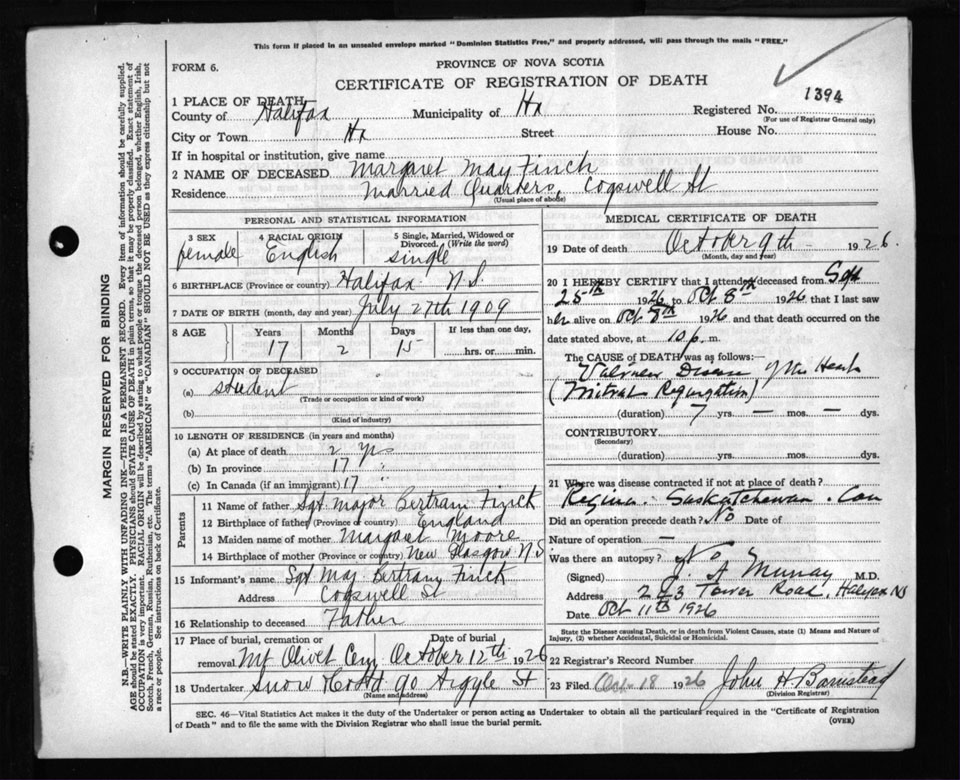 This form if placed in an unsealed envelope marked "Dominion Statistics Free," and properly addressed, will pass through the mails "FREE."
FORM 6.
PROVINCE OF NOVA SCOTIA
CERTIFICATE OF REGISTRATION OF DEATH
1 PLACE OF DEATH
County of Halifax Municipality of Hx Registered No. 1394
(For use of Registrar General only)
City or Town Hx Street House No.
If in hospital or institution, give name
2 NAME OF DECEASED Margaret May Finch
Residence Married Quarters, Cogswell St
(Usual place of abode)
PERSONAL AND STATISTICAL INFORMATION
3 SEX 4 RACIAL ORIGIN 5 Single, Married, Widowed or Divorced. (Write the word)
female English single
6 BIRTHPLACE (Province or country) Halifax N.S.
7 DATE OF BIRTH (month, day and year) July 27th 1909
8 AGE Years Months Days If less than one day,
17 2 15 hrs. or min.
9 OCCUPATION OF DECEASED
(a) student
(Trade or occupation or kind of work)
(b)
(Kind of industry)
10 LENGTH OF RESIDENCE (in years and months)
(a) At place of death 2 yrs
(b) In province 17 "
(c) In Canada (if an immigrant) 17
Parents
11 Name of father Sgt Major Bertram Finck
12 Birthplace of father (Province or country) England
13 Maiden name of mother Margaret Moore
14 Birthplace of mother (Province or country) New Glasgow N.S
15 Informant's name Sgt Maj Bertram Finck
Address Cogswell St
16 Relationship to deceased Father
17 Place of burial, cremation or removal Date of burial
Mt Olivet Cem, October 12th 1926
18 Undertaker Snow &Co Ltd 90 Argyle St
(Name and address)
MEDICAL CERTIFICATE OF DEATH
19 Date of death October 9th 1926.
(Month, day and year)
20 I HEREBY CERTIFY that I attended deceased from Sept
25th 1926 to Oct 8th 1926 that I last saw
her alive on Oct 8th 1926 and that death occurred on
date stated above, at 10 p. m.
The CAUSE OF DEATH was as follows:
Valvular Disease of the Heart
(Mitral Regurgitation)
(duration) 7 yrs. — mos. — dys.
CONTRIBUTORY
(Secondary)
(duration) yrs. mos. dys.
21 Where was disease contracted if not at place of death?
Regina. Saskatchewan. Can
Did an operation precede death? No Date of
Nature of operation —
Was there an autopsy? No
(Signed) J. A Murray M.D.
Address 243 Tower Road, Halifax NS
Date Oct 11th 1926
State the Disease causing Death, or in death from Violent Causes, state (1) Means and Nature of Injury, (2) whether Accidental, Suicidal or Homicidal.
22 Registrar's Record Number
23 Filed Oct 18 1926 John H Barnstead
(Division Registrar)
SEC. 46—Vital Statistics Act makes it the duty of the Undertaker or person acting as Undertaker to obtain all the particulars required in the "Certificate of Registration
of Death" and to file the same with the Division Registrar who shall issue the burial permit. (OVER)
MARGIN RESERVED FOR BINDING
N.B.—WRITE PLAINLY WITH UNFADING INK—THIS IS A PERMANENT RECORD. Every item of information should be carefully supplied.
AGE should be stated EXACTLY. PHYSICIANS should STATE CAUSE OF DEATH in plain terms, so that it may be properly classified. Exact statement of
OCCUPATION is very important. RACIAL ORIGIN will be described by stating to what people or tongue the deceased person belonged, whether English, Irish,
Scotch, French, German, Russian, Ruthenian, etc. The terms "AMERICAN" or "CANADIAN" SHOULD NOT BE USED as they express citizenship but not
a race or people. See instructions on back of Certificate.